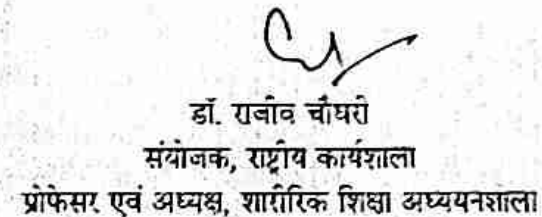 डॉ. राजीव चौधरी
संयोजक, राष्ट्रीय कार्यशाला
प्रोफेसर एवं अध्यक्ष, शारीरिक शिक्षा अध्ययनशाला